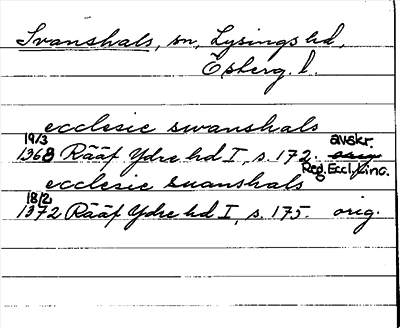 Svanshals, sn, Lysings hd,
Ögberg. l.
ecclesie swanshals
19/3 avskr.
1368 Rääf Ydre hd I, s. 172. orig
Reg. Eccl. Linc.
ecclesie suanshals
18/2
1372 Rääf Ydre hd I, s. 175. orig.